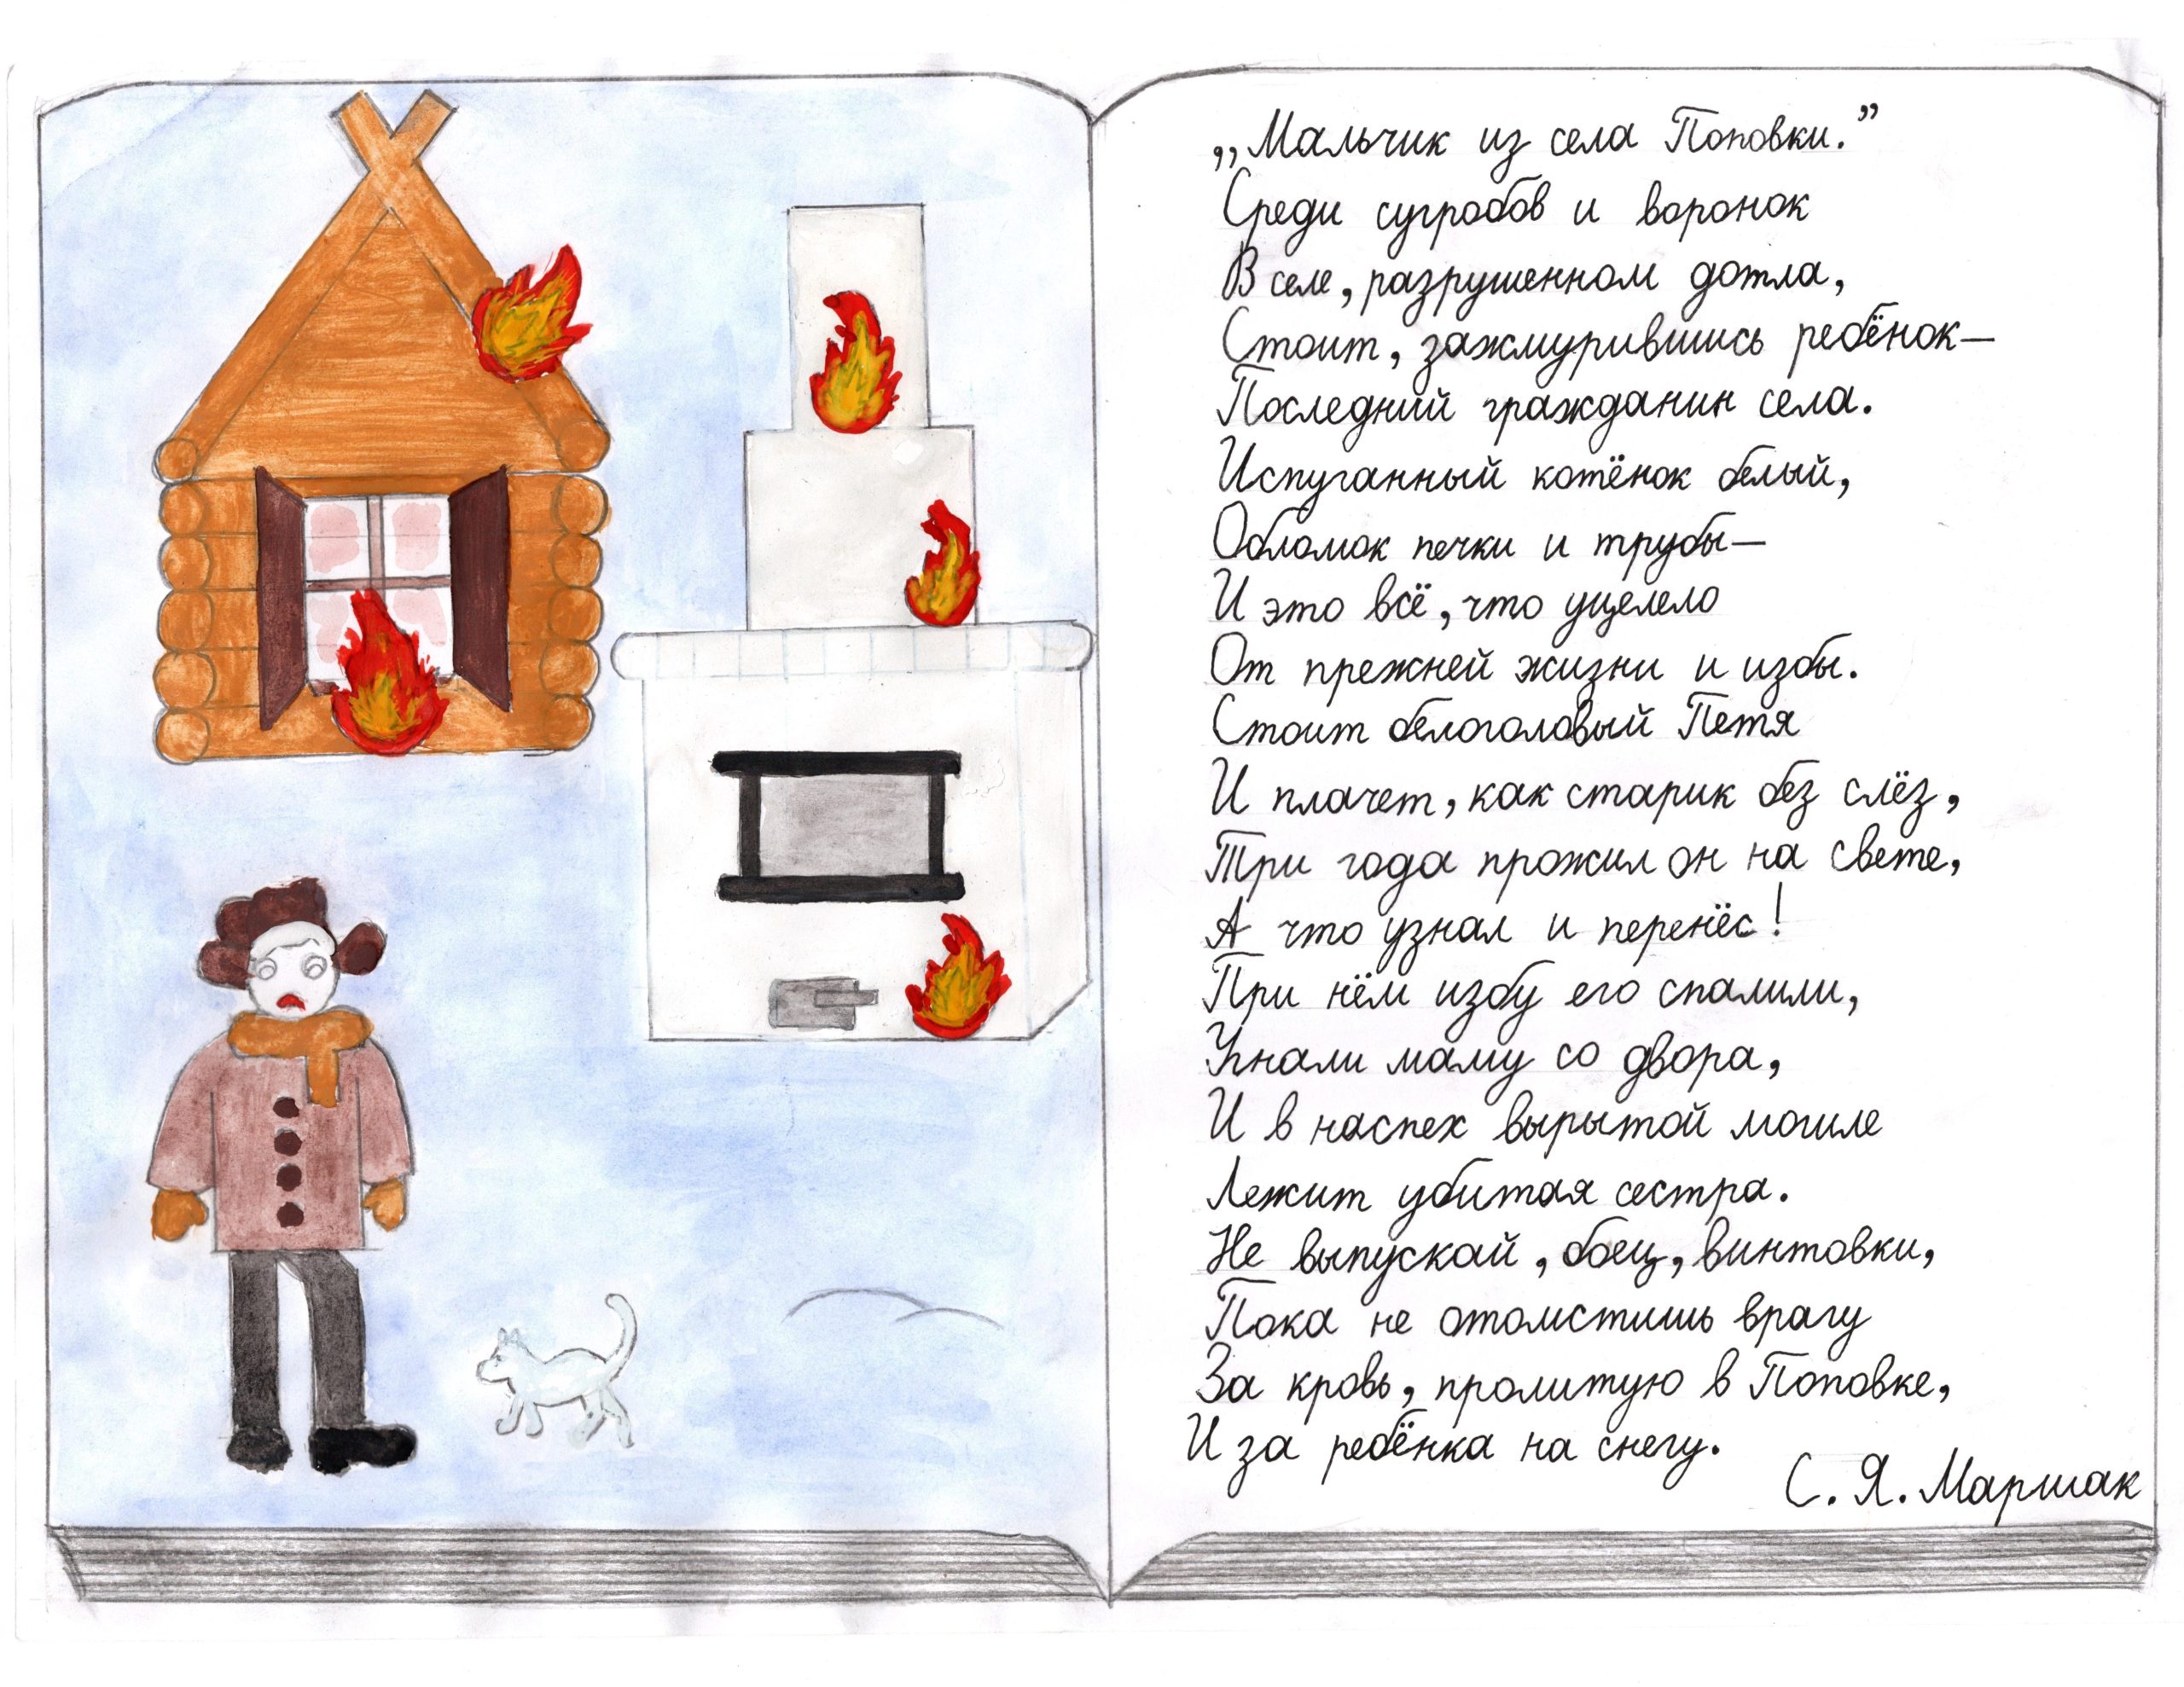 „Мальчик из села Поповки.”
Среди сугробов и воронок
В селе, разрушенном дотла,
Стоит, зажмурившись ребёнок—
Последний гражданин села.
Испуганный котёнок белый,
Обломок печки и трубы—
И это всё, что уцелело
От прежней жизни и избы.
Стоит белоголовый Петя
И плачет, как старик без слёз,
Три года прожил он на свете,
А что узнал и перенёс!
При нём избу его спалили,
Угнали маму со двора,
И в наспех вырытой могиле
Лежит убитая сестра.
Не выпускай, боец, винтовки,
Пока не отомстишь врагу
За кровь, пролитую в Поповке,
И за ребёнка на снегу.
С. Я. Маршак